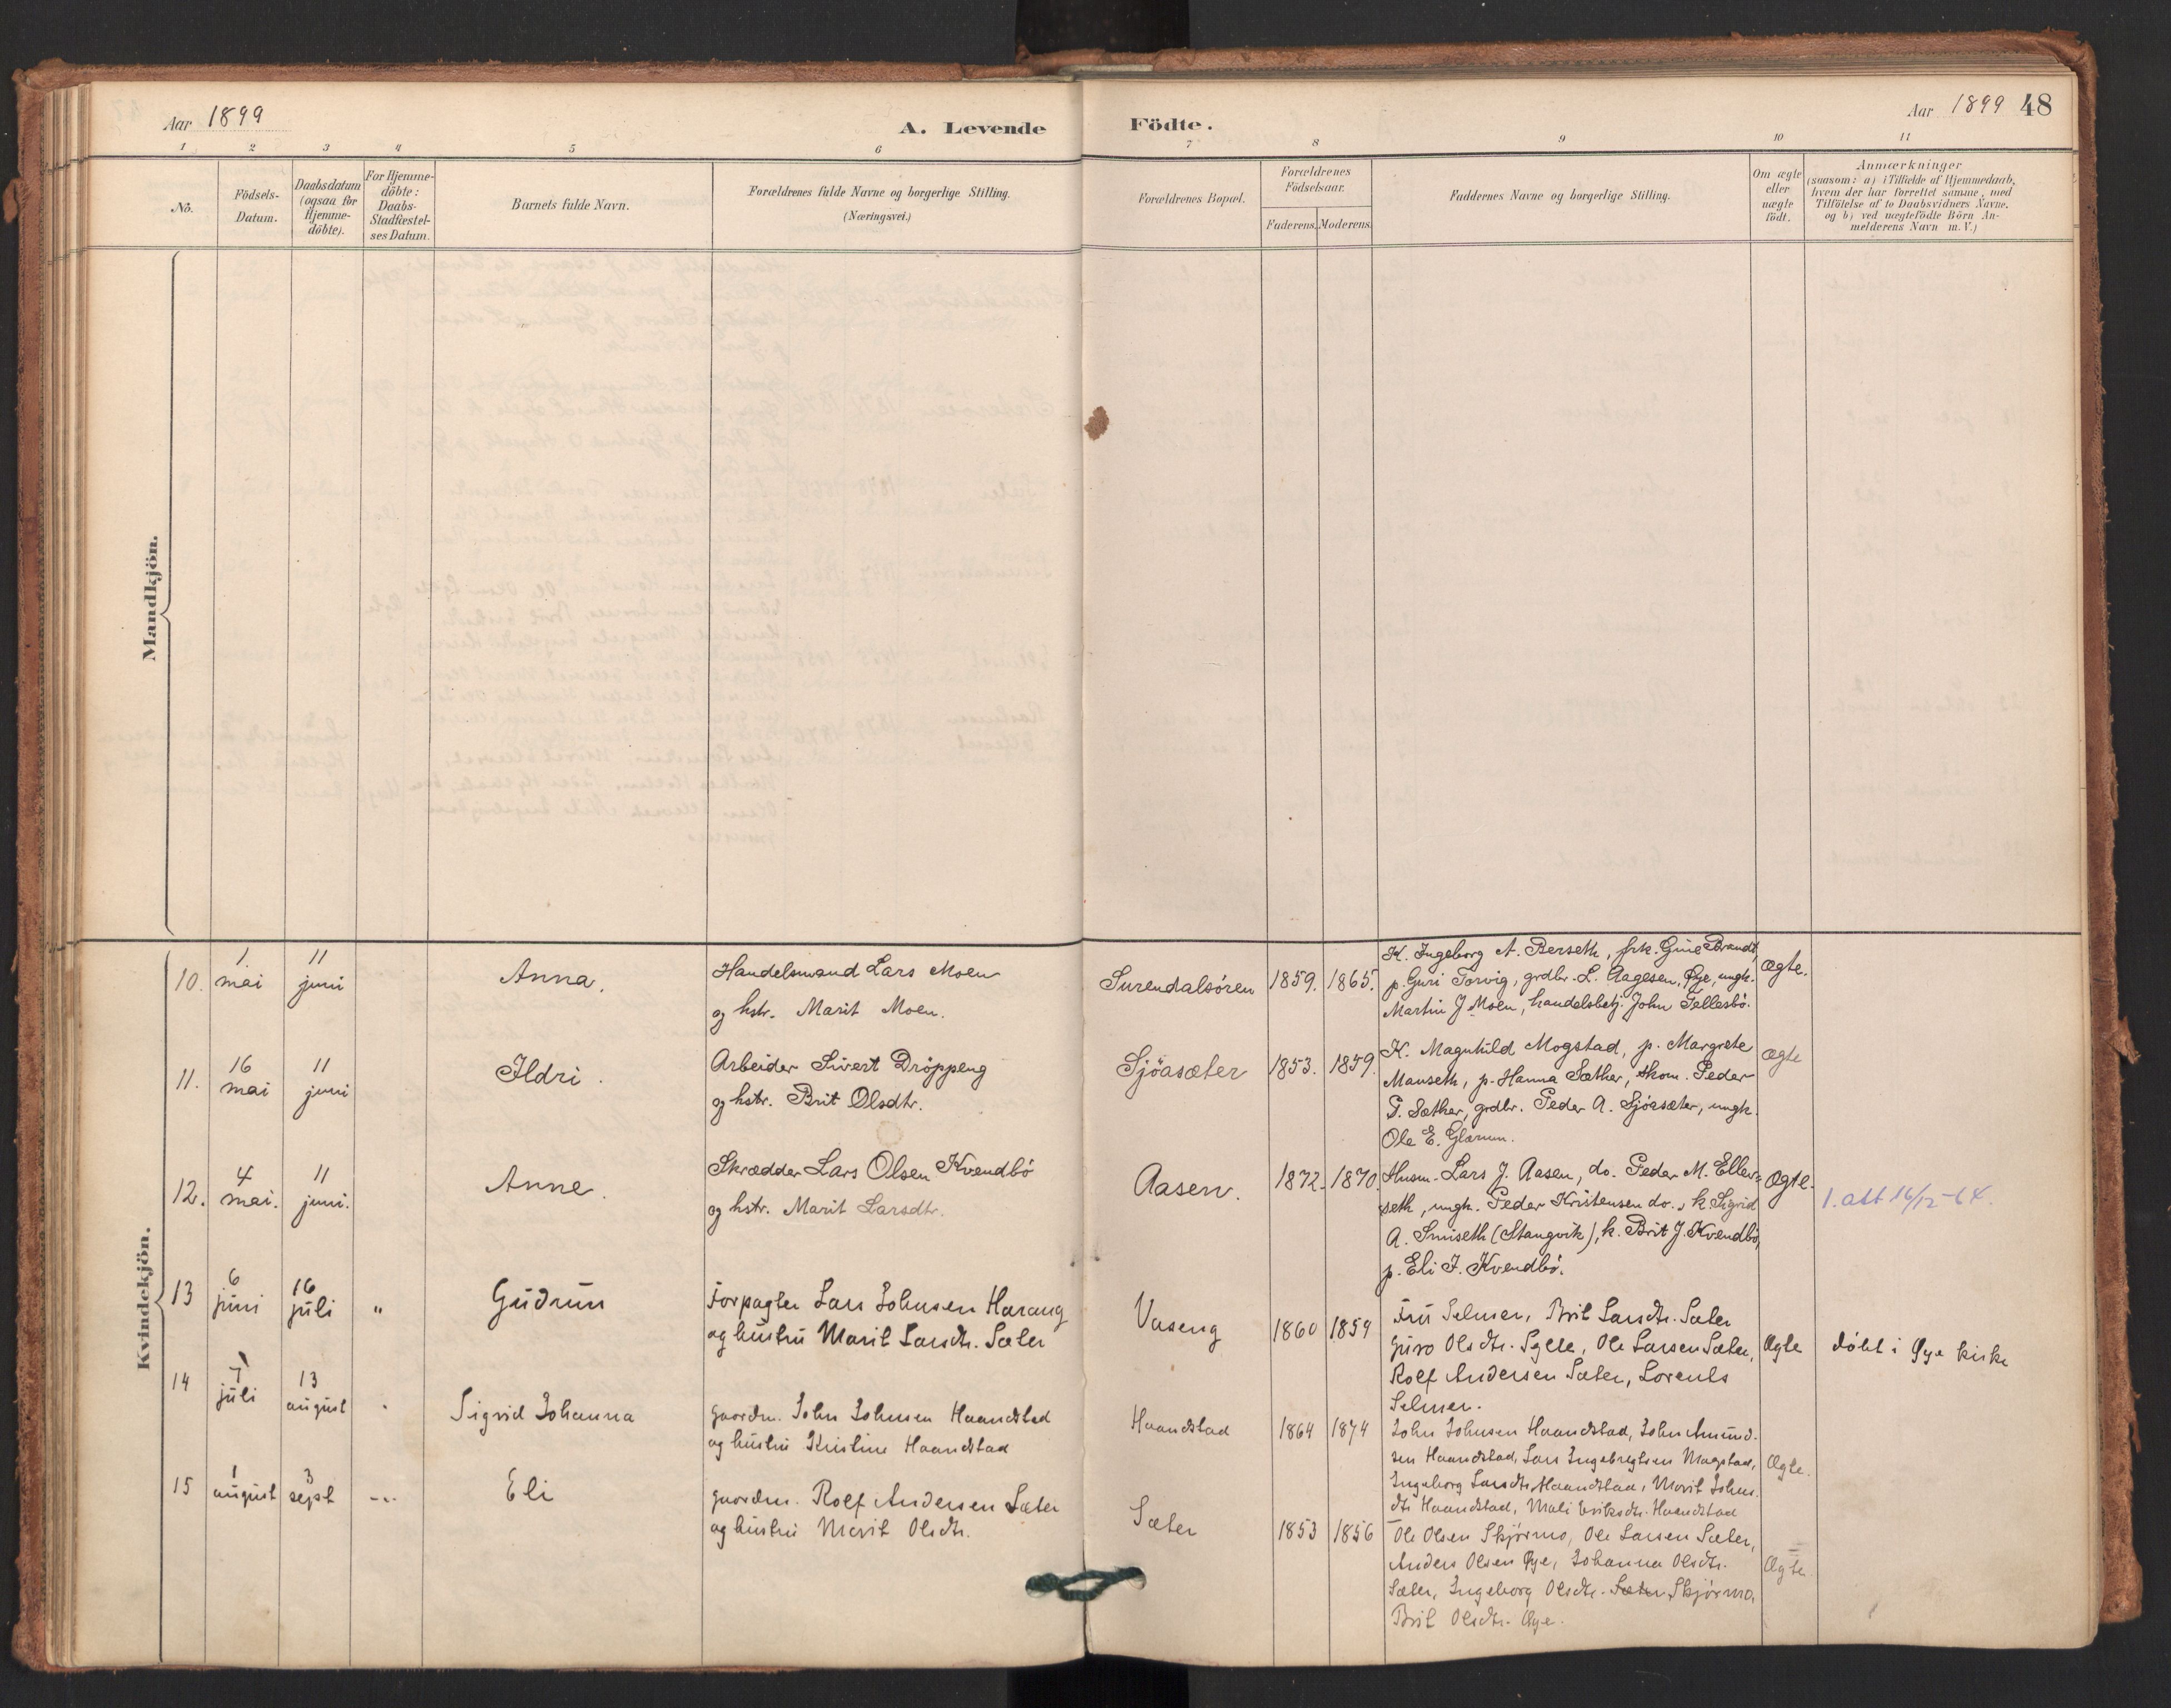 Aar 1899
A. Levende
Födte.
Aar 1899 48
1 2 3 4 5 6 7 8 9 10 11
No.
Födsels-
Datum.
Daabsdatum
(ogsaa for
Hjemme-
döbte).
For Hjemme-
döbte:
Daabs-
Stadfæstel-
ses Datum.
Barnets fulde Navn.
Forældrenes fulde Navne og borgerlige Stilling.
(Næringsvei.)
Forældrenes Bopæl.
Forældrenes
Födselsaar.
Faderens. Moderens.
Faddernes Navne og borgerlige Stilling.
Om ægte
eller
uægte
födt.
Anmærkninger
(saasom: a) i Tilfælde af Hjemmedaab,
hvem der har forrettet samme, med
Tilföielse af to Daabsvidners Navne,
og b) ved uægtefödte Börn An-
melderens Navn m.V.)
Mandkjön.
Kvindekjön.
10. 1 mai 11 juni
Anna.
Handelsmand Lars Moen
og hstr. Marit Moen.
Surendalsøren 1859. 1865.
K. Ingeborg A. Berseth, frk. Gine Brandt,
p. Guri Torvig, grdbr. L. Aagesen, Øye, ungk.
Martin J Moen, handelsbetj. John Tellesbö.
Ægte.
11. 16 mai 11 juni
Ildri.
Arbeider Sivert Dröppeng
og hstr. Brit Olsdtr.
Sjöasæter 1853. 1859.
K. Magnhild Mogstad, p. Margrete
Mauseth, p. Hanna Sæther, skom. Peder
P. Sæther, grdbr. Peder A. Sjöasæter, ungk.
Ole E. Glærum.
Ægte
12. 4 mai. 11 juni.
Anne.
Skrædder Lars Olsen Kvendbö
og hstr. Marit Larsdtr.
Aasen. 1872. 1870.
Husm. Lars J. Aasen, do. Peder M. Ellev=
seth, ungk. Peder Kristensen do., k. Sigrid
A. Smiseth (Stangvik), k. Brit J. Kvendbö,
p. Eli J. Kvendbö.
Ægte.
1. att 16/12-64.
13 6 juni 16 juli "
Gudrun
Forpagter Lars Johnsen Harang
og hustru Marit Larsdtr. Sæter
Vaseng 1860 1859
Fru Selmer, Brit Larsdtr. Sæter
Guro Olsdtr. Sylte, Ole Larsen Sæter,
Rolf Andersen Sæter, Lorents
Selmer.
Ægte
döbt i Øye kirke
14 7 juli 13 august
Sigrid Johanna
gaardm. John Johnsen Haandstad
og hustru Kristine Haandstad
Haandstad 1864 1874
John Johnsen Haandstad, John Amund-
sen Haandstad, Lars Ingebregtsen Magstad,
Ingeborg Larsdtr. Haandstad, Marit Johns-
dtr Haandstad, Mali Eriksdtr. Haandstad
Ægte.
15 1 august 3 sept
Eli
gaardm. Rolf Andersen Sæter
og hustru Marit Olsdtr.
Sæter 1853 1856
Ole Olsen Skjörmo, Ole Larsen Sæter,
Anders Olsen Øye, Johanna Olsdtr.
Sæter, Ingeborg Olsdtr. Sæter Skjörmo,
Brit Olsdtr. Øye.
Ægte.